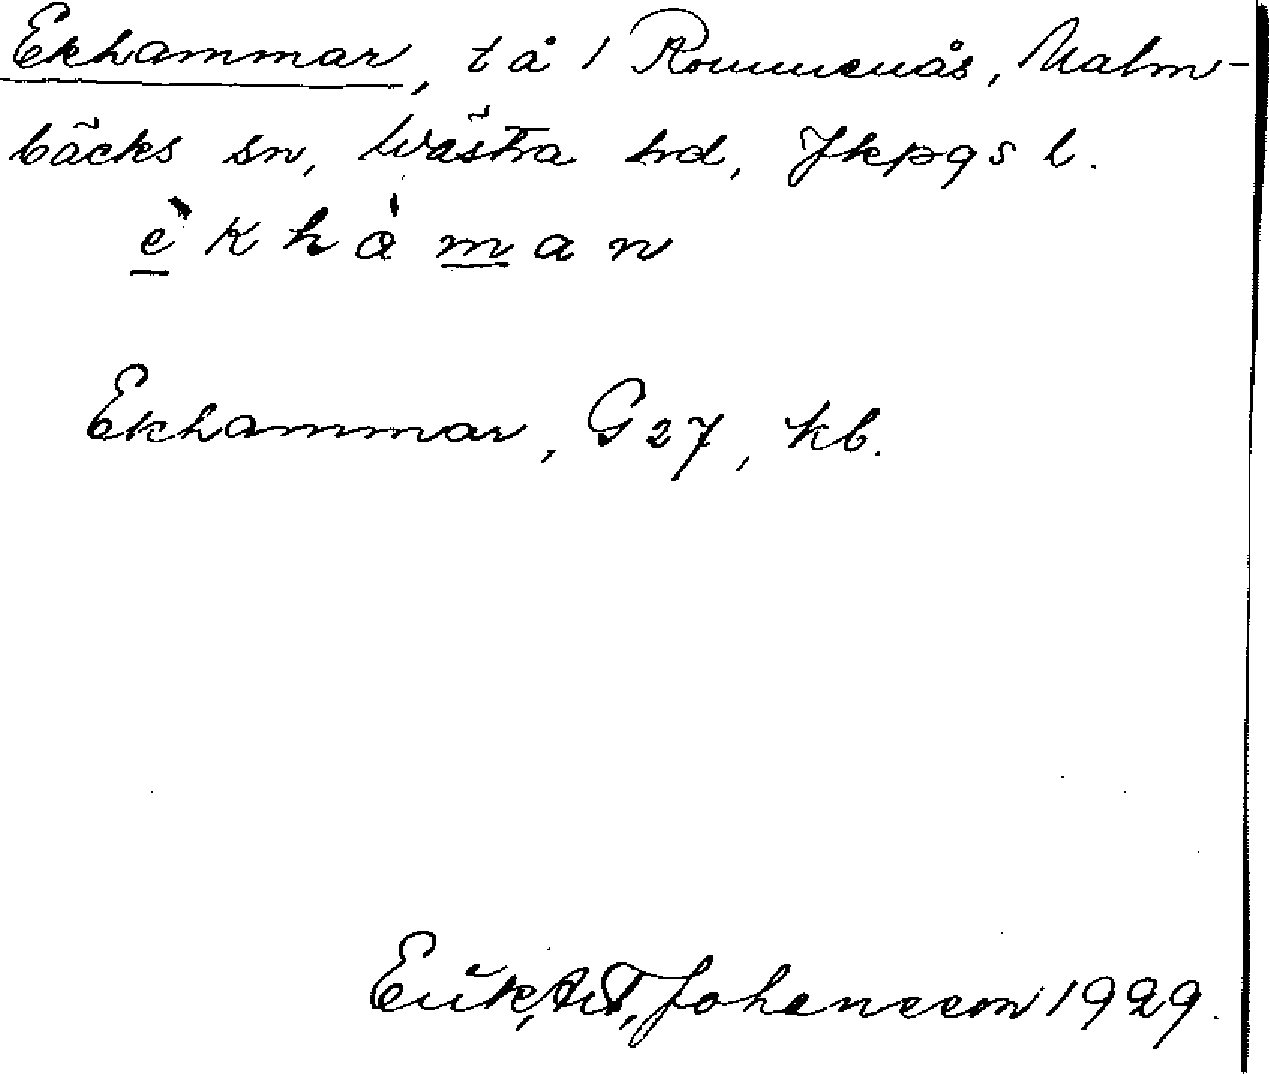 Ekhammar, tå 1 Rommenås, Malm-
bäcks sn, Västra hd, Jkpgs l.
è k h à m a n
Ekhammar, G 27, kb.
Johansson 1929.